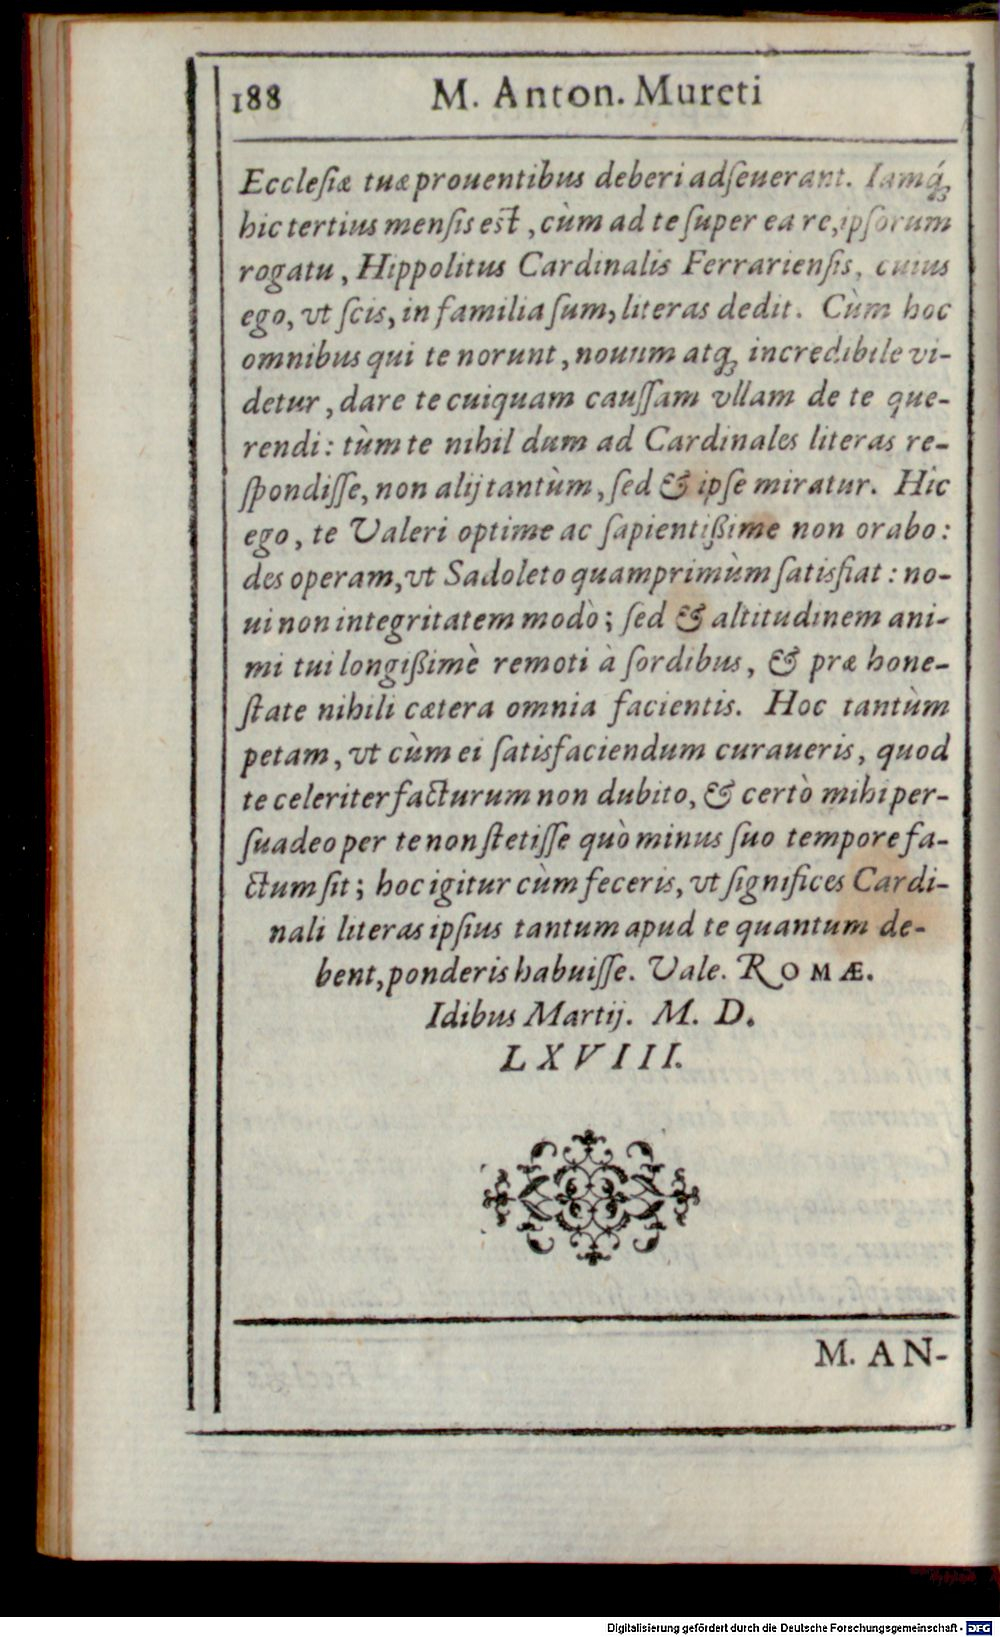 188 M. Anton. Mureti
Ecclesiæ tuæ prouentibus deberi adſeuerant. Iamq́;
hic tertius mensis est, cùm ad te ſuper ea re, ipſorum
rogatu, Hippolitus Cardinalis Ferrarienſis, cuius
ego, vt ſcis, in familia ſum, literas dedit. Cùm hoc
omnibus qui te norunt, nouum atq; incredibile vi-
detur, dare te cuiquam cauſſam vllam de te que-
rendi: tùm te nihil dum ad Cardinales literas re-
ſpondiſſe, non alij tantùm, ſed & ipſe miratur. Hîc
ego, te Valeri optime ac ſapientißime non orabo:
des operam, vt Sadoleto quamprimùm ſatisfiat: no-
ui non integritatem modò; ſed & altitudinem ani-
mi tui longißimè remoti à ſordibus, & præ hone-
ſtate nihili cætera omnia facientis. Hoc tantùm
petam, vt cùm ei ſatisfaciendum curaueris, quod
te celeriter facturum non dubito, & certò mihi per-
ſuadeo per te non ſtetiſſe quò minus ſuo tempore fa-
ctum ſit; hoc igitur cùm feceris, vt ſignifices Cardi-
nali literas ipſius tantum apud te quantum de-
bent, ponderis habuiſſe. Vale. ROMÆ.
Idibus Martij. M. D.
LXVIII.
M. AN-
Digitalisierung gefördert durch die Deutsche Forschungsgemeinschaft - DFG